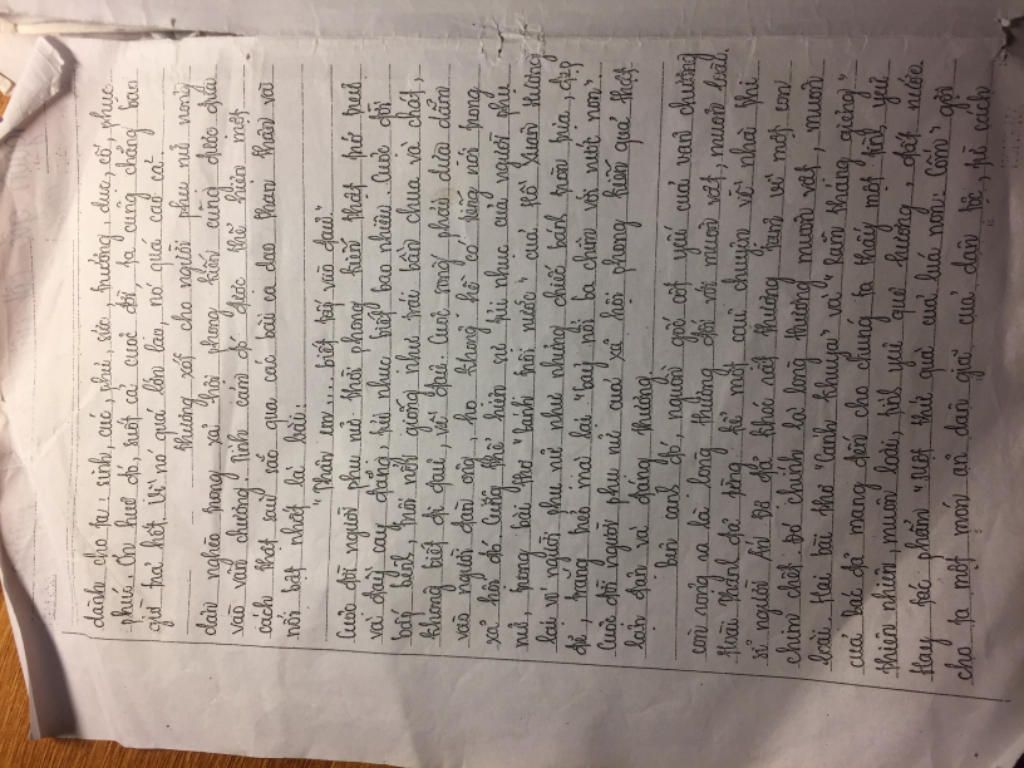 dành cho ta: sinh, cúc, phủ, súc, trưởng, dục, cố, phục
phúc. Ơn huệ đó, suốt cả cuộc đời, ta cũng chẳng bao
giờ trả hết. Vì nó quá lớn lao, nó quá cao cả.
Thương xót cho người phụ nữ nông
dân nghèo trong xã hội phong kiến cũng được đưa
vào văn chương. Tình cảm đó được thể hiện một
cách thật sâu sắc qua các bài ca dao than thân và
nổi bật nhất là bài:
"Thân em... biết tấp vào đâu."
Cuộc đời người phụ nữ thời phong kiến thật phó truân
và đầy cay đắng, tủi nhục biết bao nhiêu. Cuộc đời
bấp bênh, trôi nổi giống như trái bần chua và chát,
không biết đi đâu, về đâu. Cuộc sống phải chìa đắm
vào người đàn ông, họ không hề có tiếng nói trong
xã hội đó. Cũng thể hiện sự tủi nhục của người phụ
nữ, trong bài thơ "bánh trôi nước" của Hồ Xuân Hương
lại ví người phụ nữ như những chiếc bánh tròn trịa, đẹp
đẽ, trắng trẻo mà lại "bảy nổi ba chìm với nước non".
Cuộc đời người phụ nữ của xã hội phong kiến quá thật
lận đận và đáng thương.
bên cạnh đó, nguồn gốc cốt yếu của văn chương
còn rộng ra là lòng thương đối với muôn vật, muôn loài.
Hoài Thanh đã từng kể một câu chuyện về nhà thi
sĩ người Ấn Độ đã khóc rất thương tâm vì một con
chim chết. Đó chính là lòng thương muôn vật, muôn
loài. Hai bài thơ "Cảnh khuya" và "Rằm tháng giêng"
của bác đã mang đến cho chúng ta thấy một tình yêu
thiên nhiên, muôn loài, tình yêu quê hương, đất nước.
Hay tác phẩm "Một thứ quà của lúa non: Cốm" gợi
cho ta một món ăn dân giã của dân tộc, từ cách